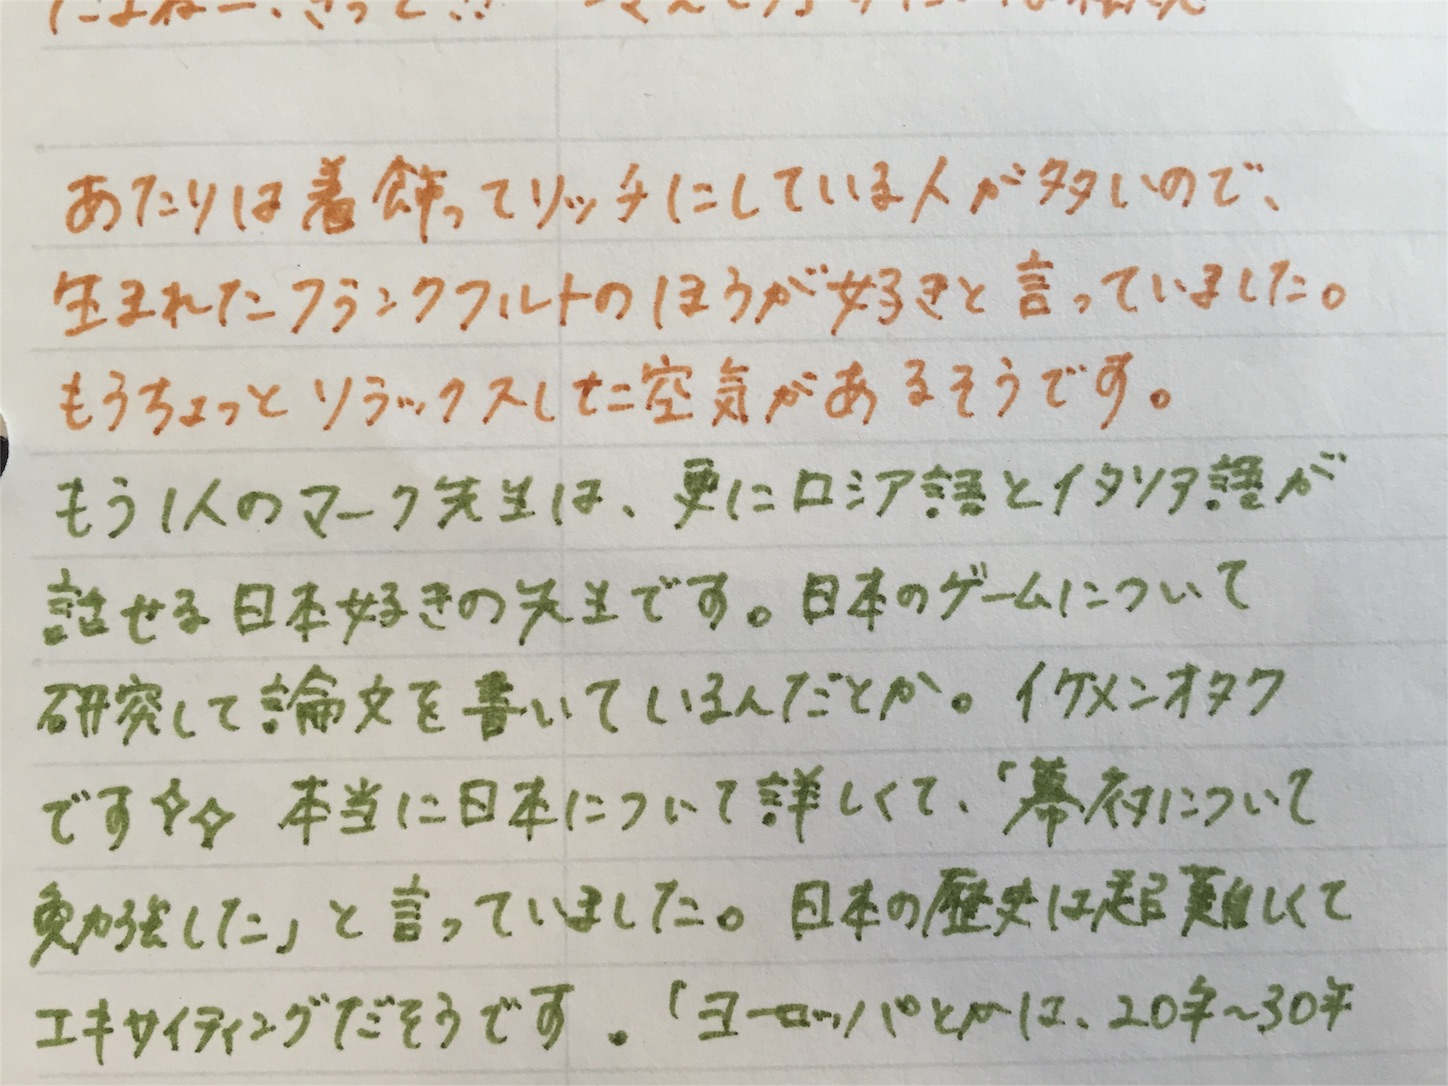 あたりは着飾ってリッチにしている人が多いので、
生まれたフランクフルトのほうが好きと言っていました。
もうちょっとリラックスした空気があるそうです。
もう1人のマーク先生は、更にロシア語とイタリア語が
話せる日本好きの先生です。日本のゲームについて
研究して論文を書いているんだとか。イケメンオタク
です✧✧ 本当に日本について詳しくて、「幕府について
勉強した」と言っていました。日本の歴史は超難しくて
エキサイティングだそうです。「ヨーロッパとかは、20年~30年